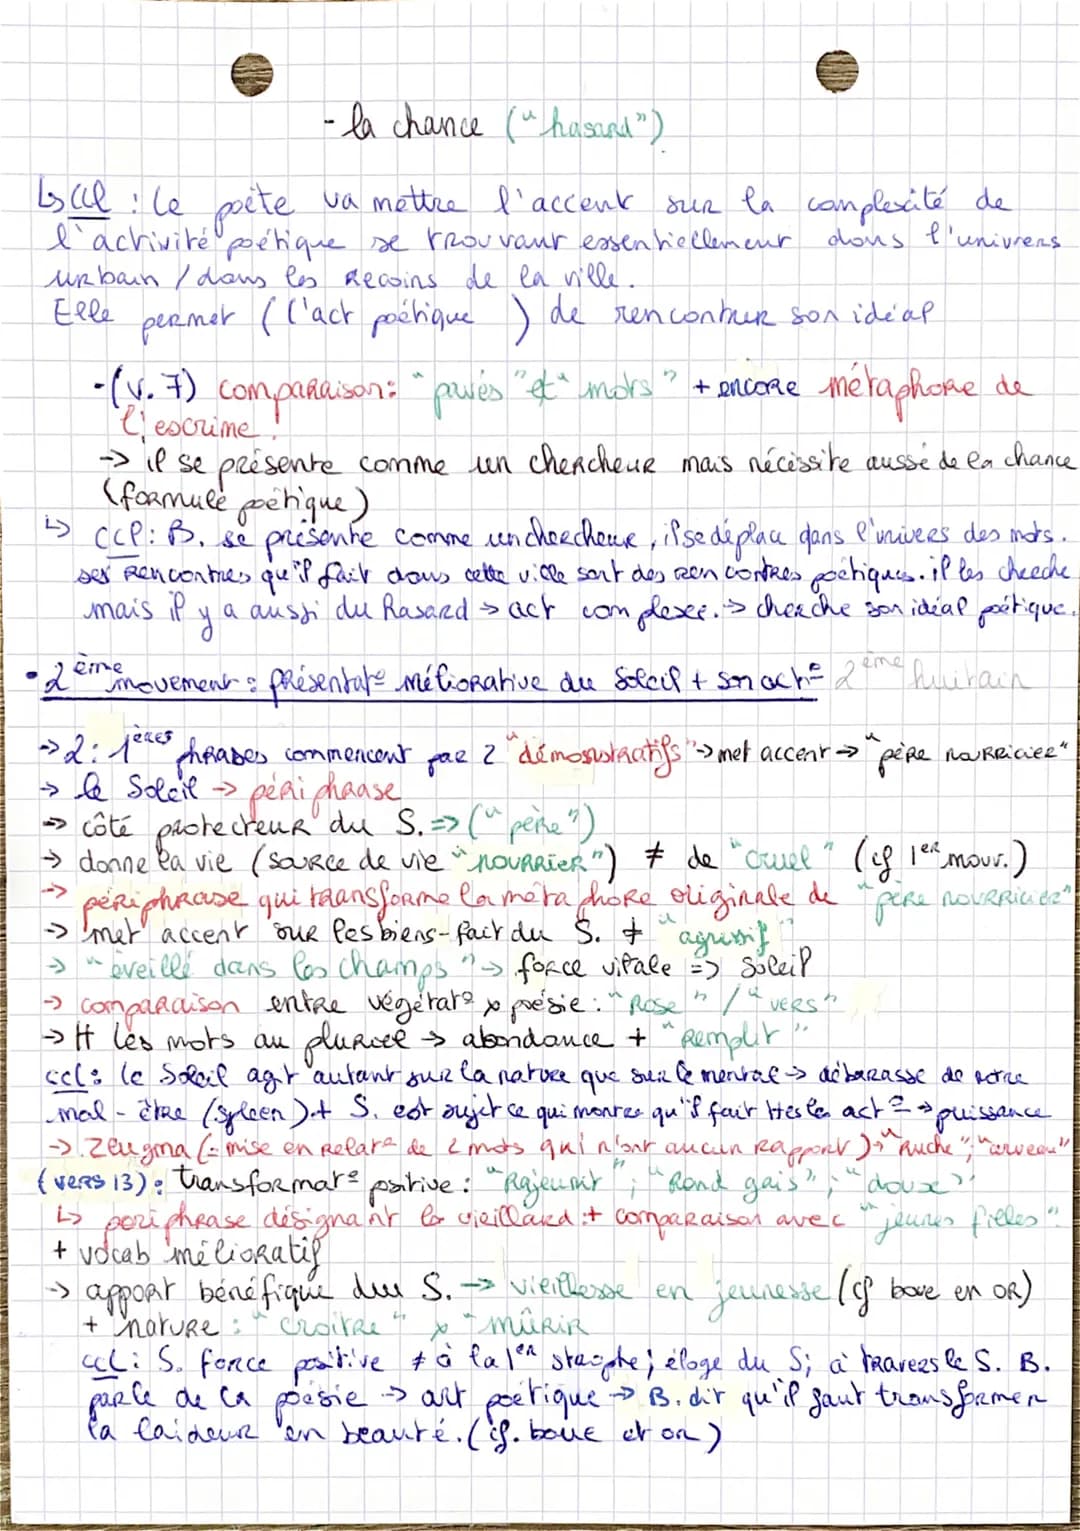 - la chance ("hasard")
↳ ccl : le poète va mettre l'accent sur la complexité de
l'activité poétique se trouvant essentiellement dans l'univers
urbain / dans les recoins de la ville.
Elle permet (l'act poétique ) de rencontrer son idéal
-(v. 7) comparaison: "pavés" et "mots" + encore métaphore de
l'escrime.
-> il se présente comme un chercheur mais nécessite aussi de la chance
(formule poétique)
↳ ccl: B. se présente comme un chercheur, il se déplace dans l'univers des mots.
ses rencontres qu'il fait dans cette ville sont des rencontres poétiques. il les cherche
mais il y a aussi du hasard -> act complexe. -> cherche son idéal poétique.
• 2ème mouvement : présentat° méliorative du Soleil + son act° 2ème huitain
-> 2: 1ères phrases commencent par 2 "démonstratifs" -> met accent -> "père nourricier"
-> le Soleil -> périphrase
-> côté protecteur du S. => ("père")
-> donne la vie (source de vie "nourrier") ≠ de "cruel" (cf 1er mouv.)
-> périphrase qui transforme la métaphore originale de "père nourricier"
-> met accent sur les biens-fait du S. ≠ "agressif"
-> "éveille dans les champs" -> force vitale => Soleil
-> comparaison entre végétat° x poésie : "Rose" / "vers"
-> tt les mots au pluriel -> abondance + "Remplit"
ccl: le Soleil agit autant sur la nature que sur le mental -> débarasse de notre
mal-être (spleen) + S. est sujet ce qui montre qu'il fait ttes les act° -> puissance
-> Zeugma (= mise en relat° de 2 mots qui n'ont aucun rapport) -> "Ruche"; "cerveau"
(vers 13): transformat° positive : "Rajeunit"; "Rend gais"; "doux"
↳ periphrase désignant le vieillard + comparaison avec "jeunes filles"
+ vocab mélioratif
-> apport bénéfique du S. -> vieillesse en jeunesse (cf boue en OR)
+ nature : "croître" x "mûrir
ccl: S. force positive ≠ à la 1er strophe; éloge du S; à travers le S. B.
parle de la poésie -> art poétique -> B. dit qu'il faut transformer
la laideur en beauté. (cf. boue et or)